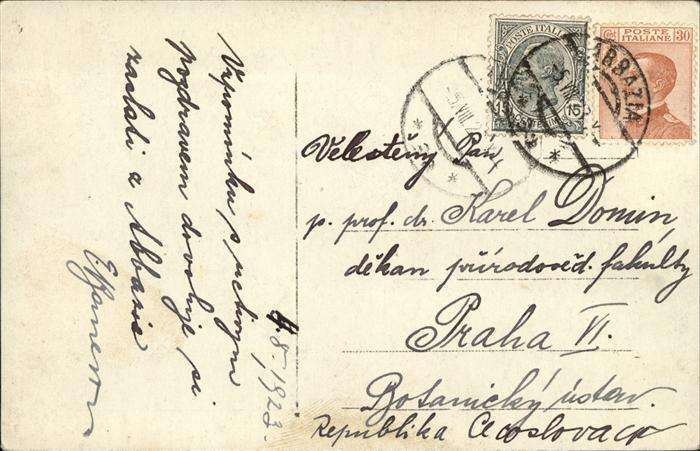 Vzpomínku s uctivým
pozdravem dovoluje si
zaslati z Abbazie
4.8.1923.
POSTE ITALIANE
15
POSTE
ITALIANE
30
ABBAZIA
Velectěný Pan
p. prof. dr. Karel Domin,
děkan přírodověd. fakulty
Praha VI.
Botanický ústav.
Republika Cecoslovaca